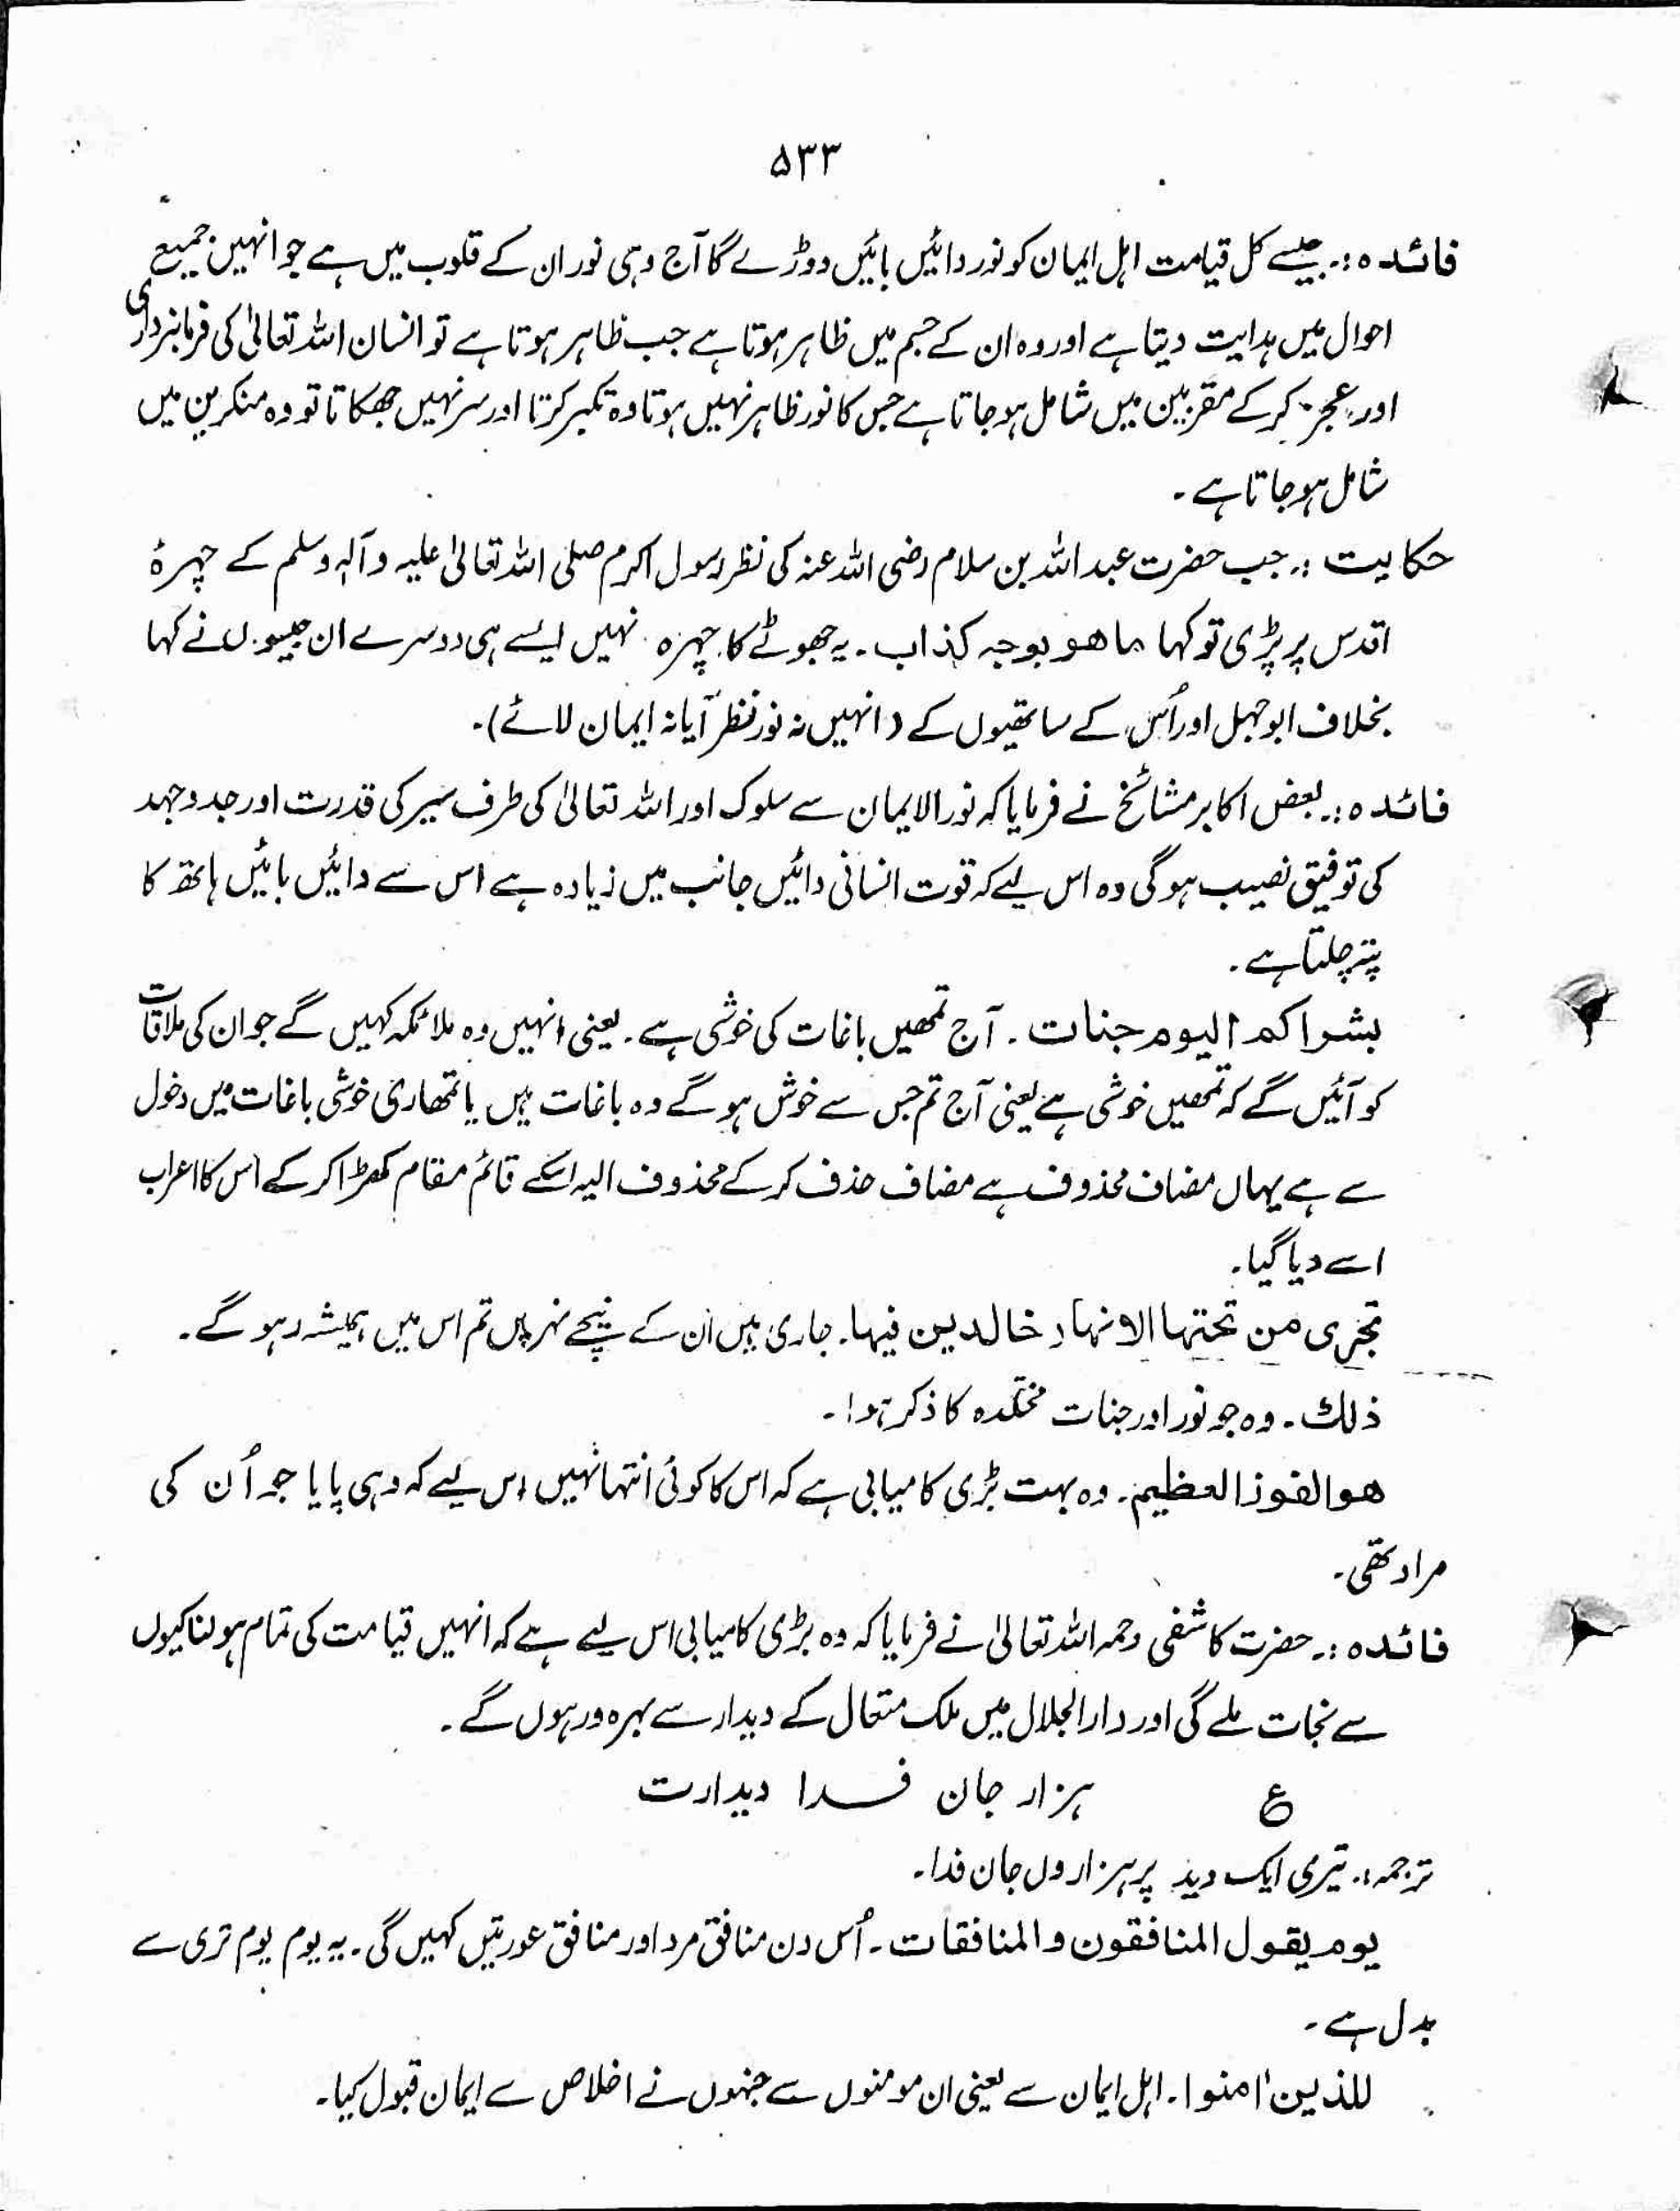 ۵۳۳
فائدہ :۔ جیسے کل قیامت اہل ایمان کو نور دائیں بائیں دوڑے گا آج وہی نور ان کے قلوب میں ہے جو انہیں جمیع
احوال میں ہدایت دیتا ہے اور وہ ان کے جسم میں ظاہر ہوتا ہے جب ظاہر ہوتا ہے تو انسان اللہ تعالیٰ کی فرمانبرداری
اور عجز کر کے مقربین میں شامل ہو جاتا ہے جس کا نور ظاہر نہیں ہوتا وہ تکبر کرتا اور سر نہیں جھکاتا تو وہ منکرین میں
شامل ہو جاتا ہے ۔
حکایت :۔ جب حضرت عبداللہ بن سلام رضی اللہ عنہ کی نظر رسول اکرم صلی اللہ تعالیٰ علیہ وآلہ وسلم کے چہرۂ
اقدس پر پڑی تو کہا ما ھو بوجہ کذاب ۔ یہ جھوٹے کا چہرہ نہیں ایسے ہی دوسرے ان جیسوں نے کہا
بخلاف ابوجہل اور اُس کے ساتھیوں کے (انہیں نہ نور نظر آیا نہ ایمان لائے)۔
فائدہ :۔ بعض اکابر مشائخ نے فرمایا کہ نور الایمان سے سلوک اور اللہ تعالیٰ کی طرف سیر کی قدرت اور جدوجہد
کی توفیق نصیب ہوگی وہ اس لیے کہ قوت انسانی دائیں جانب میں زیادہ ہے اس سے دائیں بائیں ہاتھ کا
پتہ چلتا ہے ۔
بشراکم الیوم جنات ۔ آج تمھیں باغات کی خوشی ہے ۔ یعنی انہیں وہ ملائکہ کہیں گے جو ان کی ملاقات
کو آئیں گے کہ تمھیں خوشی ہے یعنی آج تم جس سے خوش ہو گے وہ باغات ہیں یا تمھاری خوشی باغات میں دخول
سے ہے یہاں مضاف محذوف ہے مضاف حذف کر کے محذوف الیہ اسکے قائم مقام کھڑا کر کے اس کا اعراب
اسے دیا گیا ۔
تجری من تحتہا الانہار خالدین فیہا ۔ جاری ہیں اُن کے نیچے نہریں تم اس میں ہمیشہ رہو گے ۔
ذلک ۔ وہ جو نور اور جنات مخلدہ کا ذکر ہوا ۔
ھو الفوز العظیم ۔ وہ بہت بڑی کامیابی ہے کہ اس کا کوئی انتہا نہیں اس لیے کہ وہی پایا جو اُن کی
مراد تھی ۔
فائدہ :۔ حضرت کاشفی رحمہ اللہ تعالیٰ نے فرمایا کہ وہ بڑی کامیابی اس لیے ہے کہ انہیں قیامت کی تمام ہولناکیوں
سے نجات ملے گی اور دار الجلال میں ملک متعال کے دیدار سے بہرہ ور ہوں گے ۔
ع ہزار جان فدا دیدارت
ترجمہ :۔ تیری ایک دید پر ہزاروں جان فدا ۔
یوم یقول المنافقون والمنافقات ۔ اُس دن منافق مرد اور منافق عورتیں کہیں گی ۔ یہ یوم یوم تری سے
بدل ہے ۔
للذین اٰمنوا ۔ اہل ایمان سے یعنی ان مومنوں سے جنہوں نے اخلاص سے ایمان قبول کیا ۔